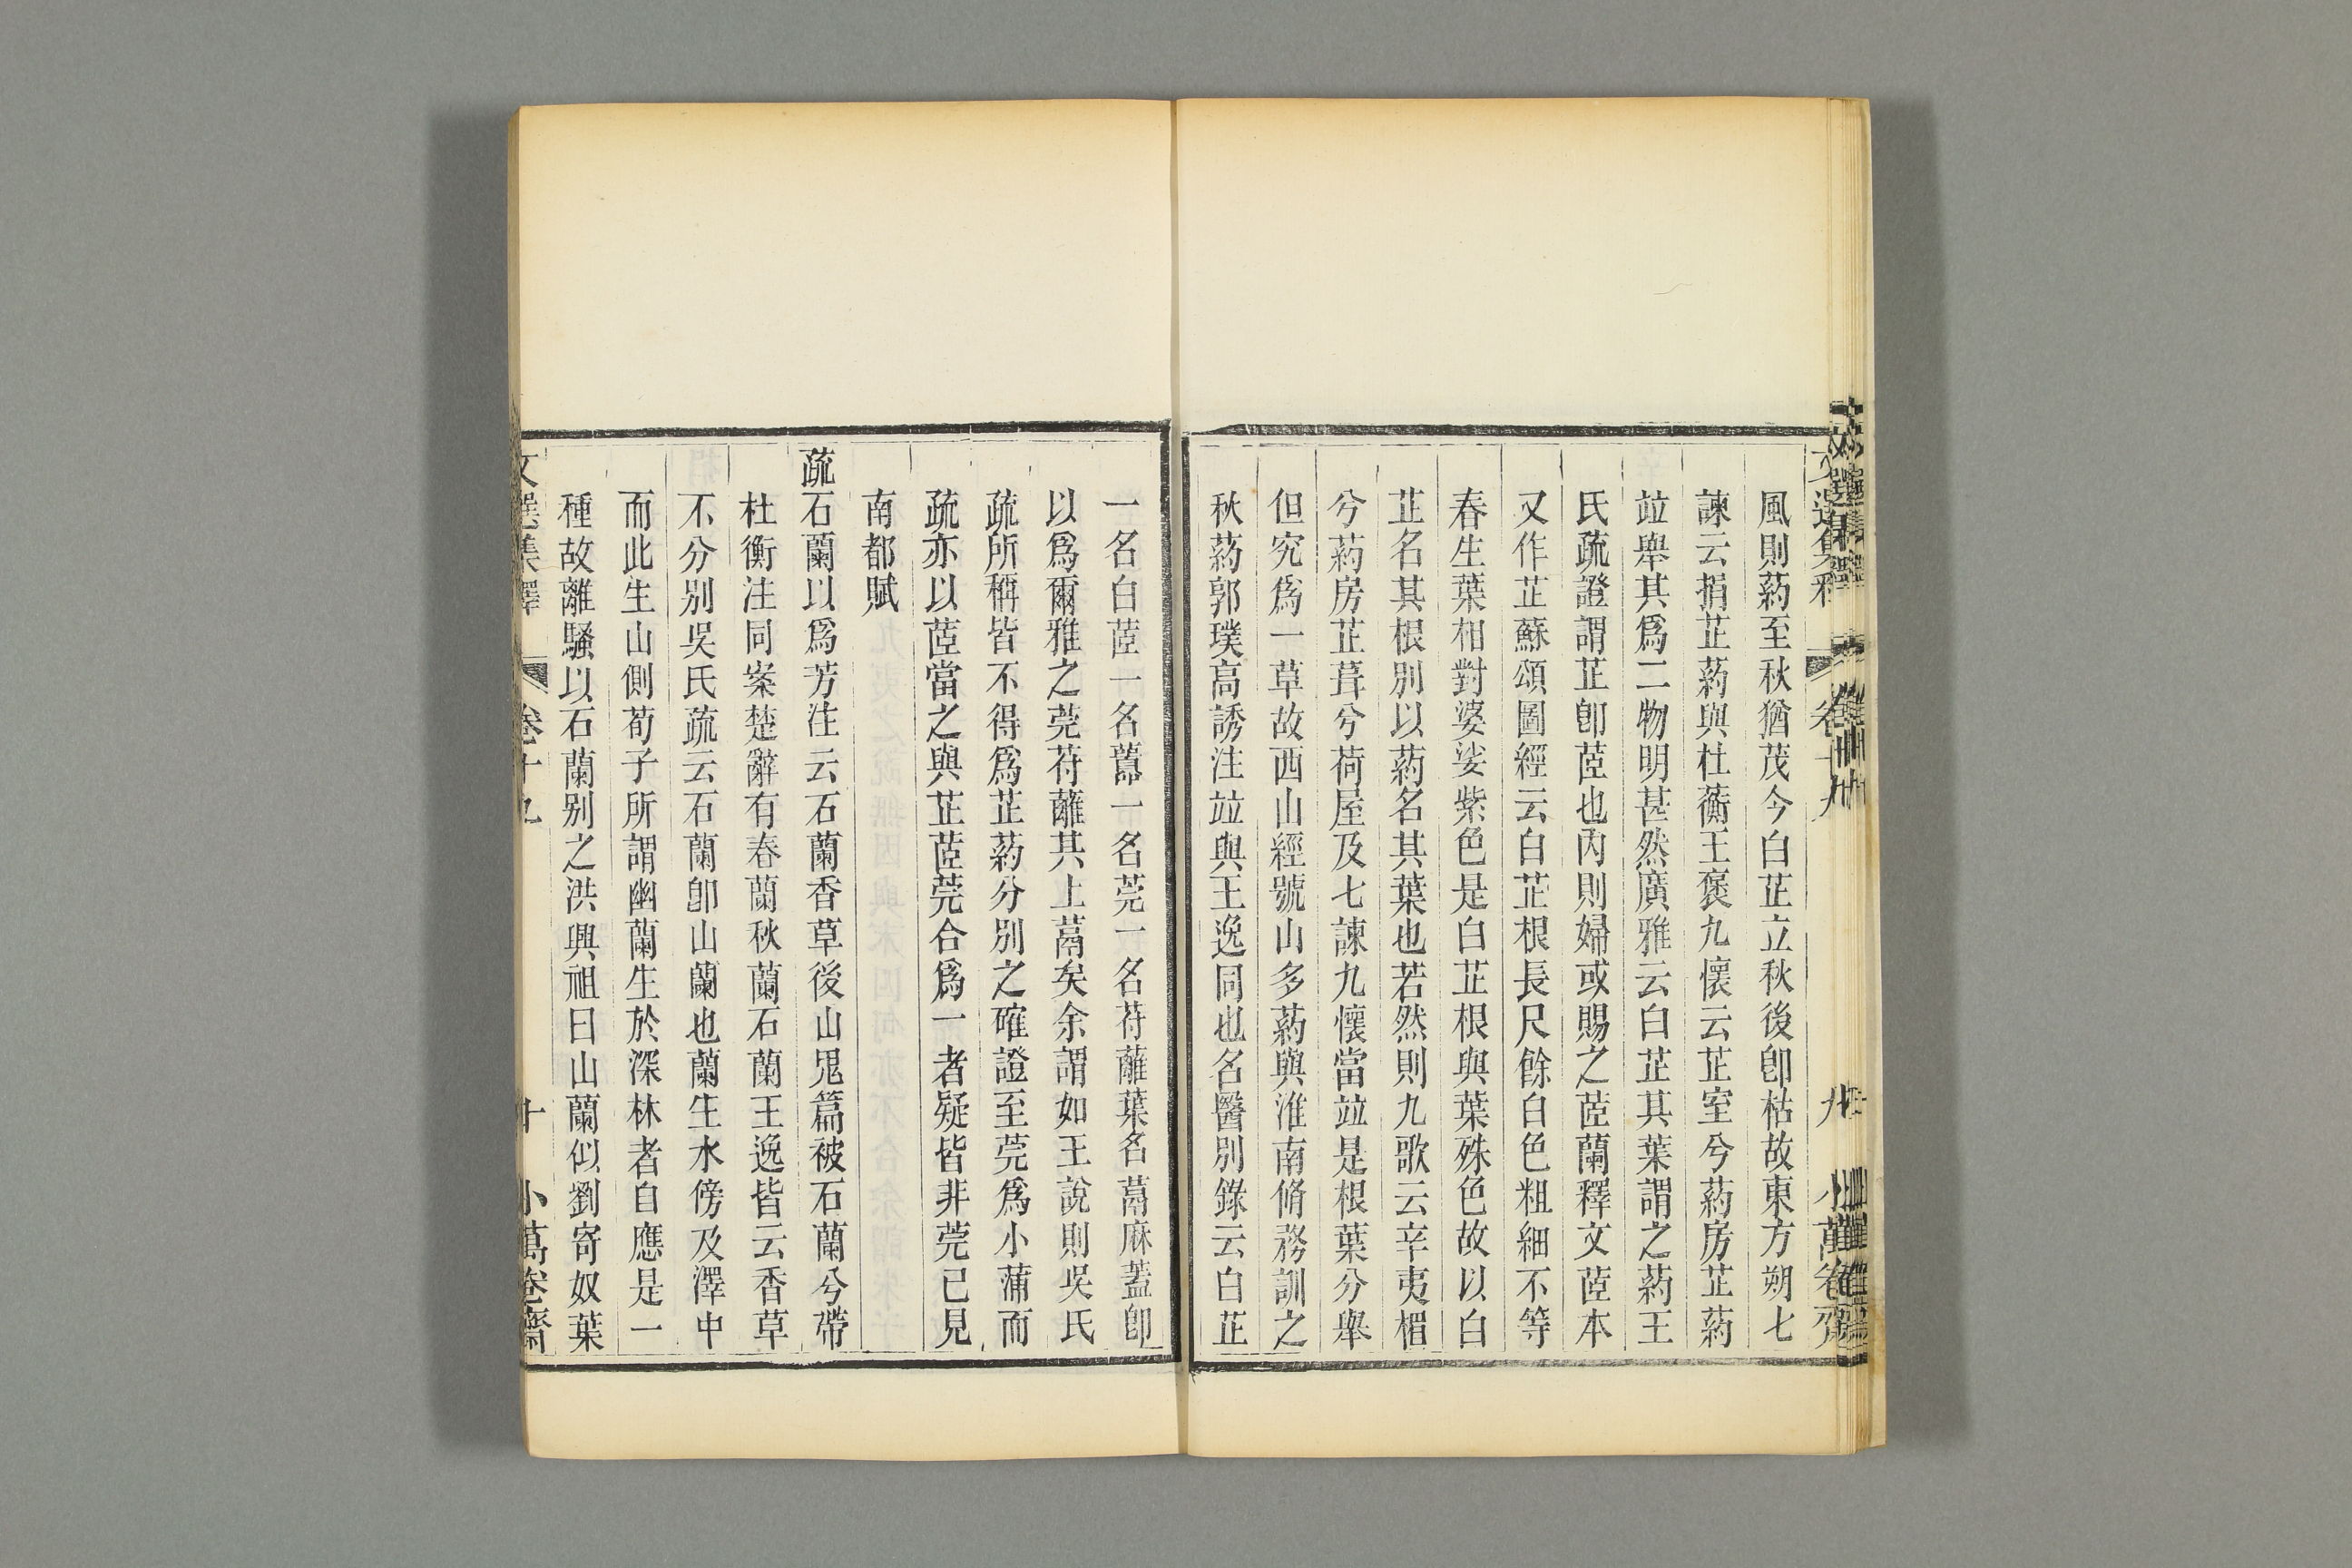 風則葯至秋猶茂今白芷立秋後卽枯故東方朔七
諫云捐芷葯與杜蘅王褒九懷云芷室兮葯房芷葯
竝舉其爲二物明甚然廣雅云白芷其葉謂之葯王
氏疏證謂芷卽茝也內則婦或賜之茝蘭釋文茝本
又作芷蘇頌圖經云白芷根長尺餘白色粗細不等
春生葉相對婆娑紫色是白芷根與葉殊色故以白
芷名其根別以葯名其葉也若然則九歌云辛夷楣
兮葯房芷葺兮荷屋及七諫九懷當竝是根葉分舉
但究爲一草故西山經號山多葯與淮南脩務訓之
秋葯郭璞高誘注竝與王逸同也名醫別錄云白芷
一名白茝一名虈一名莞一名苻蘺葉名蒚麻蓋卽
以爲爾雅之莞苻蘺其上蒚矣余謂如王說則吳氏
疏所稱皆不得爲芷葯分別之確證至莞爲小蒲而
疏亦以茝當之與芷茝莞合爲一者疑皆非莞已見
南都賦
疏石蘭以爲芳注云石蘭香草後山鬼篇被石蘭兮帶
杜衡注同案楚辭有春蘭秋蘭石蘭王逸皆云香草
不分別吳氏疏云石蘭卽山蘭也蘭生水傍及澤中
而此生山側荀子所謂幽蘭生於深林者自應是一
種故離騷以石蘭別之洪興祖曰山蘭似劉寄奴葉
文選集釋 卷十九 十 小萬卷齋